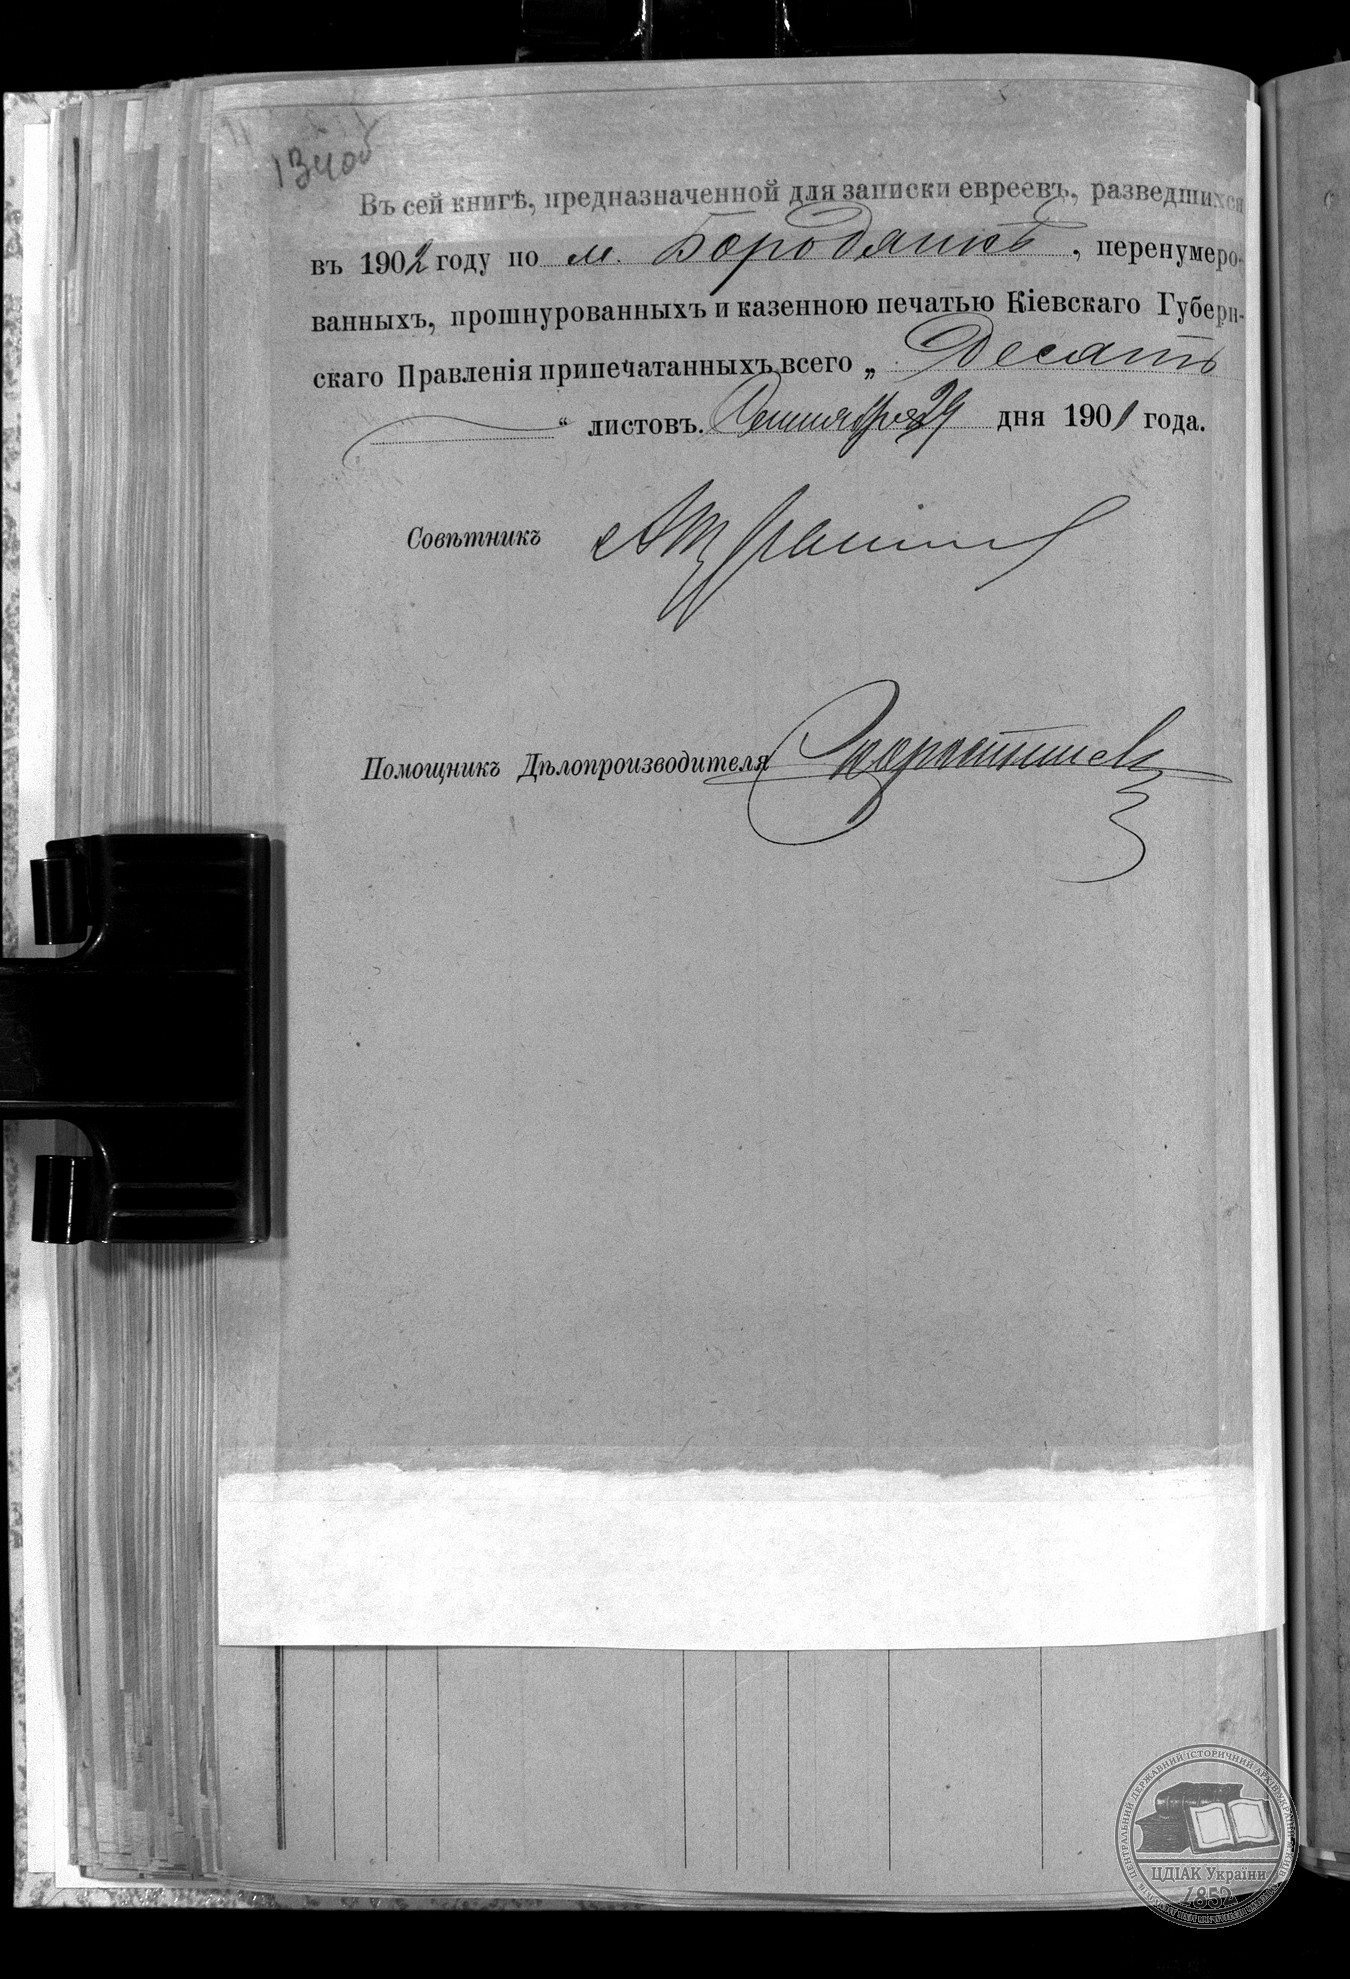 134об
Въ сей книгѣ, предназначенной для записки евреевъ, разведшихся
въ 1902 году по м. Бородянкѣ, перенумеро-
ванныхъ, прошнурованныхъ и казенною печатью Кіевскаго Губерн-
скаго Правленія припечатанныхъ всего „ Десять
“ листовъ. 29 дня 1901 года.
Совѣтникъ
Помощникъ Дѣлопроизводителя
ЦЕНТРАЛЬНИЙ ДЕРЖАВНИЙ ІСТОРИЧНИЙ АРХІВ УКРАЇНИ, М. КИЇВ
ЦДІАК України
1852